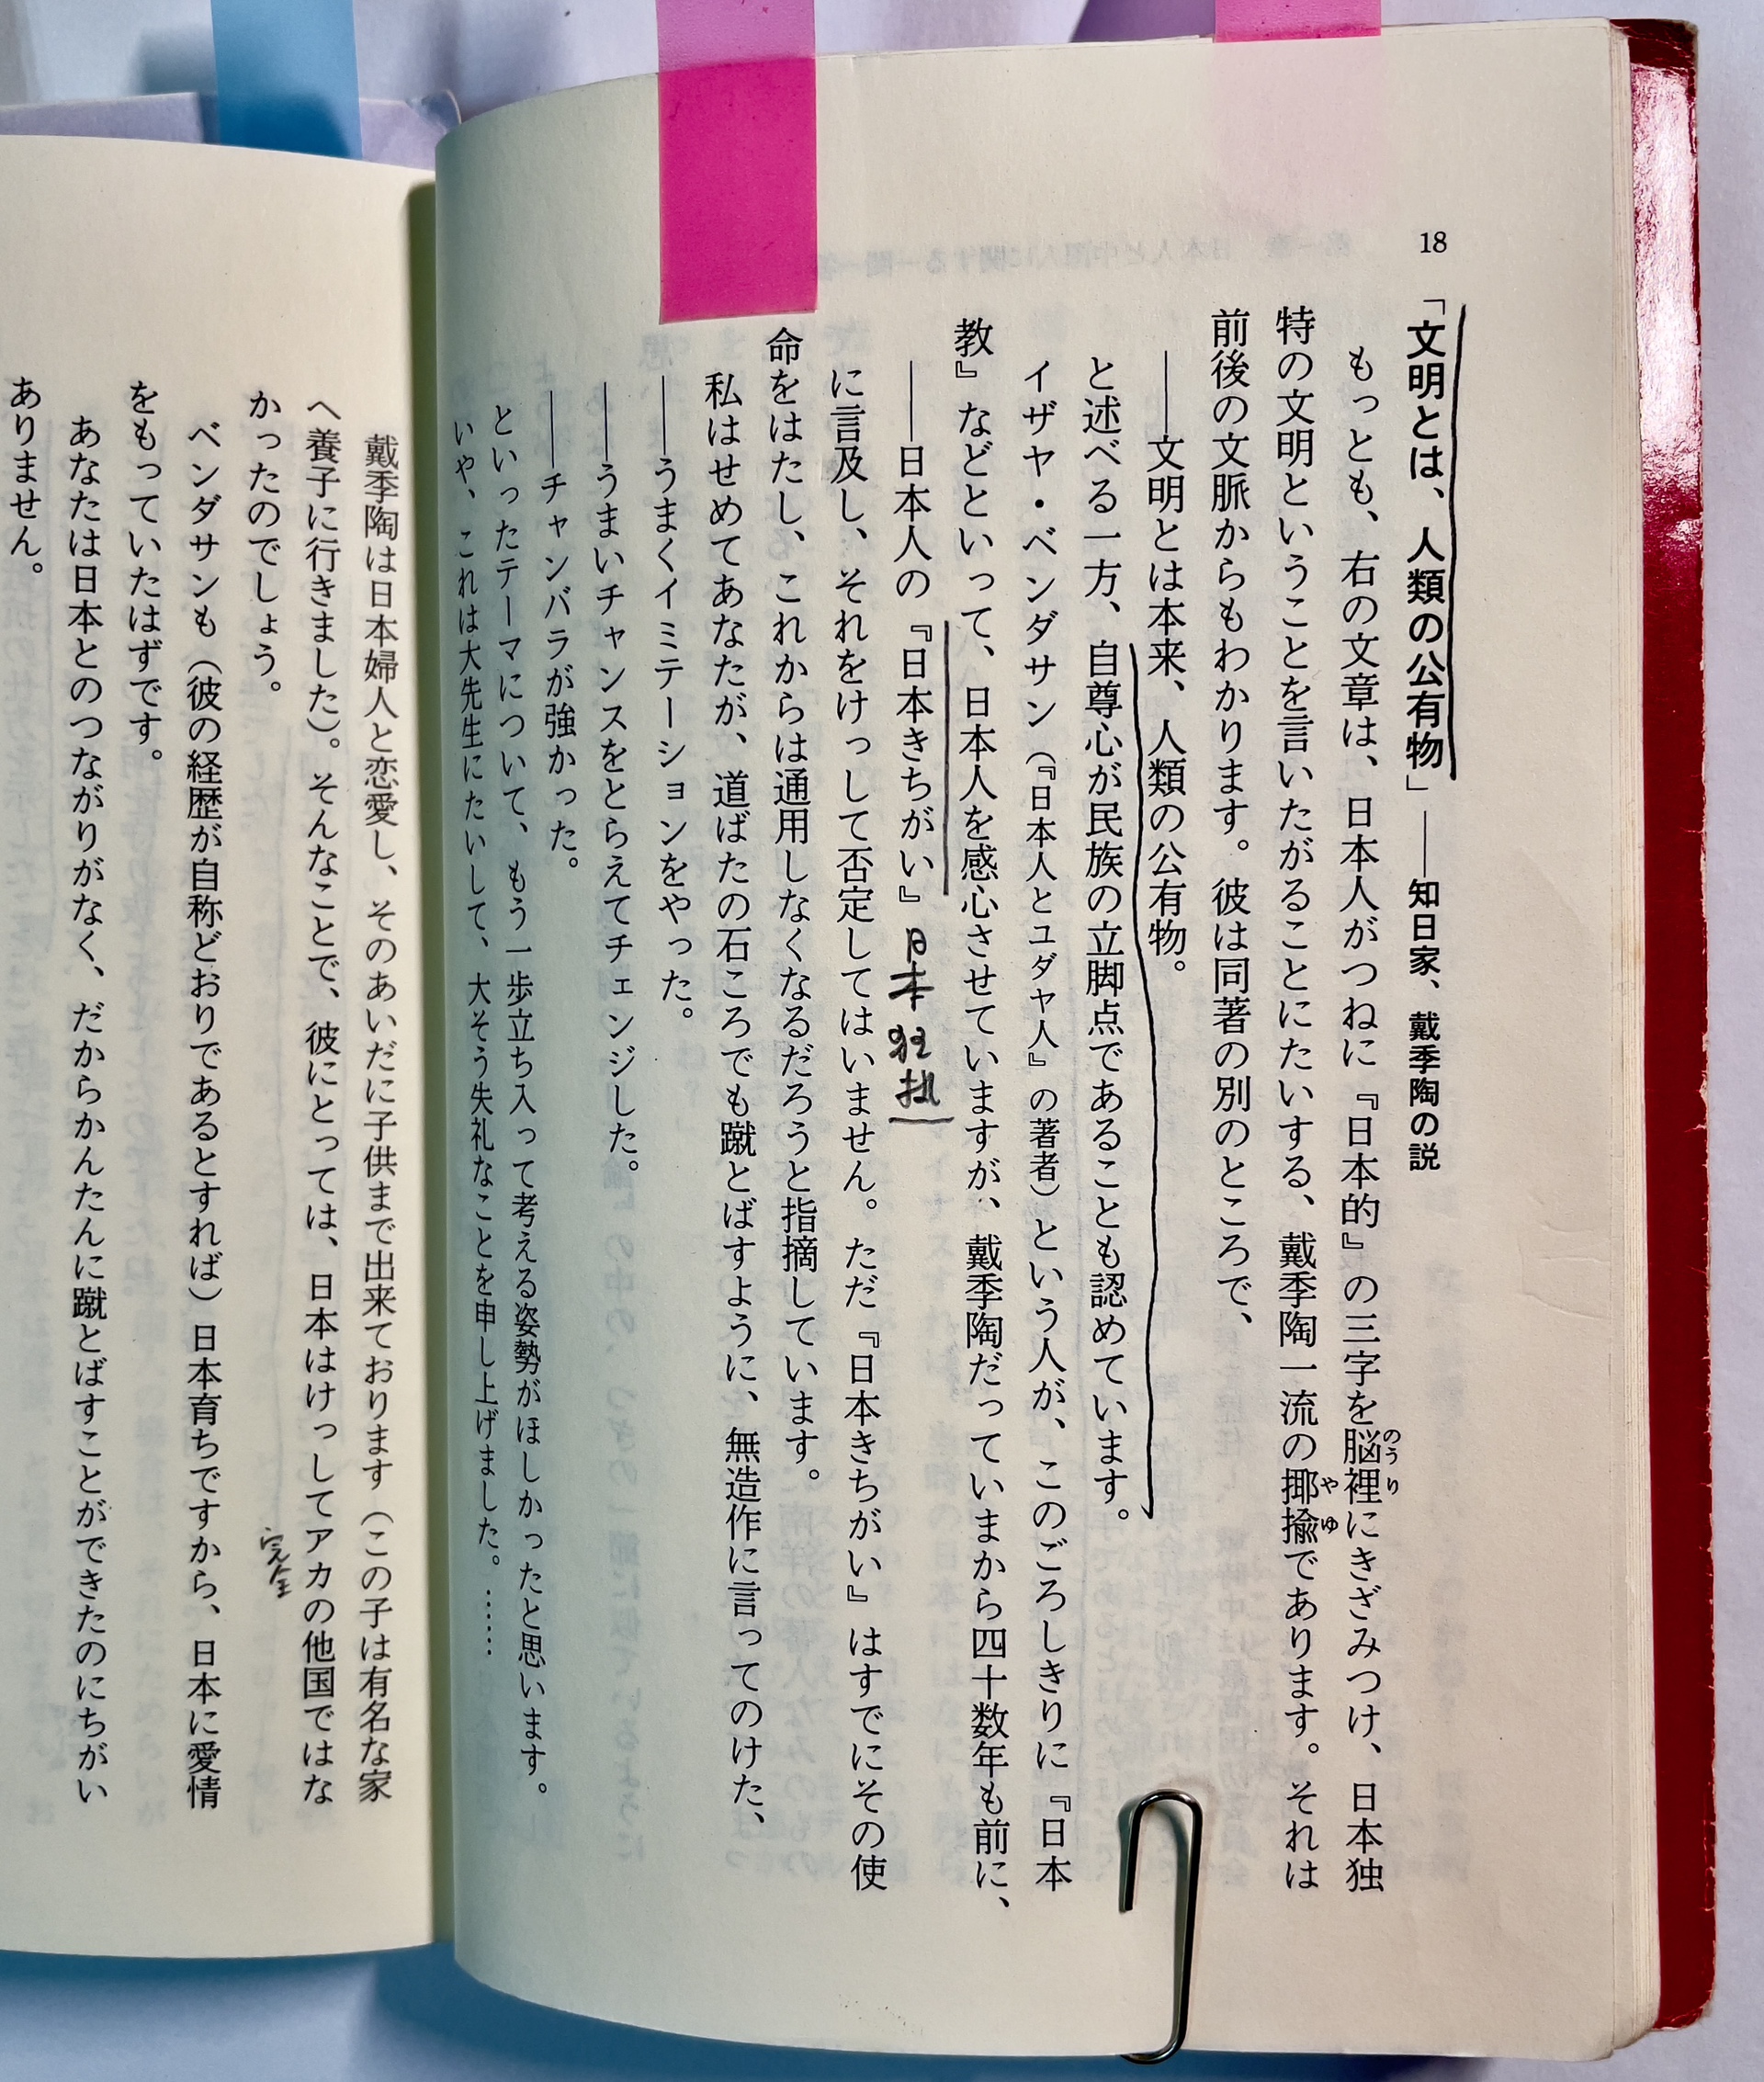 18
「文明とは、人類の公有物」――知日家、戴季陶の説
もっとも、右の文章は、日本人がつねに『日本的』の三字を脳裡にきざみつけ、日本独
のうり
特の文明ということを言いたがることにたいする、戴季陶一流の揶揄であります。それは
やゆ
前後の文脈からもわかります。彼は同著の別のところで、
――文明とは本来、人類の公有物。
と述べる一方、自尊心が民族の立脚点であることも認めています。
イザヤ・ベンダサン(『日本人とユダヤ人』の著者)という人が、このごろしきりに『日本
教』などといって、日本人を感心させていますが、戴季陶だっていまから四十数年も前に、
――日本人の『日本きちがい』
日本狂热
に言及し、それをけっして否定してはいません。ただ『日本きちがい』はすでにその使
命をはたし、これからは通用しなくなるだろうと指摘しています。
私はせめてあなたが、道ばたの石ころでも蹴とばすように、無造作に言ってのけた、
――うまくイミテーションをやった。
――うまいチャンスをとらえてチェンジした。
――チャンバラが強かった。
といったテーマについて、もう一歩立ち入って考える姿勢がほしかったと思います。
いや、これは大先生にたいして、大そう失礼なことを申し上げました。……
戴季陶は日本婦人と恋愛し、そのあいだに子供まで出来ております(この子は有名な家
へ養子に行きました)。そんなことで、彼にとっては、日本はけっしてアカの他国ではな
完全
かったのでしょう。
ベンダサンも(彼の経歴が自称どおりであるとすれば)日本育ちですから、日本に愛情
をもっていたはずです。
あなたは日本とのつながりがなく、だからかんたんに蹴とばすことができたのにちがい
ありません。